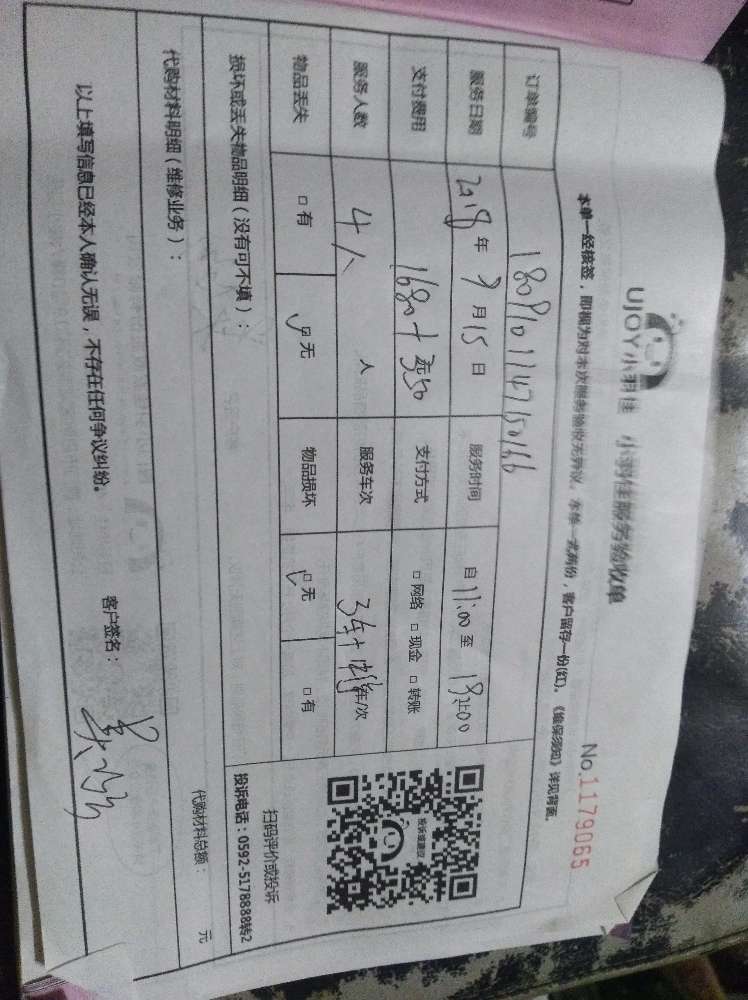 UJOY小羽佳 小羽佳服务验收单
No.1179065
本单一经核签，即视为对本次服务验收无异议。本单一式两份，客户留存一份(红)。《维保须知》详见背面。
订单编号
服务日期 2018年9月15日 服务时间 自11:00至
支付费用 1680+ 支付方式 □网络 □现金 □转账
服务人数 4人 人 服务车次 车/次
物品丢失 □有 □无 物品损坏 □无 □有
损坏或丢失物品明细（没有可不填）：
投诉或建议
扫码评价或投诉
投诉电话：0592-5178888转2
代购材料明细（维修业务）： 代购材料总额： 元
以上填写信息已经本人确认无误，不存在任何争议纠纷。
客户签名：